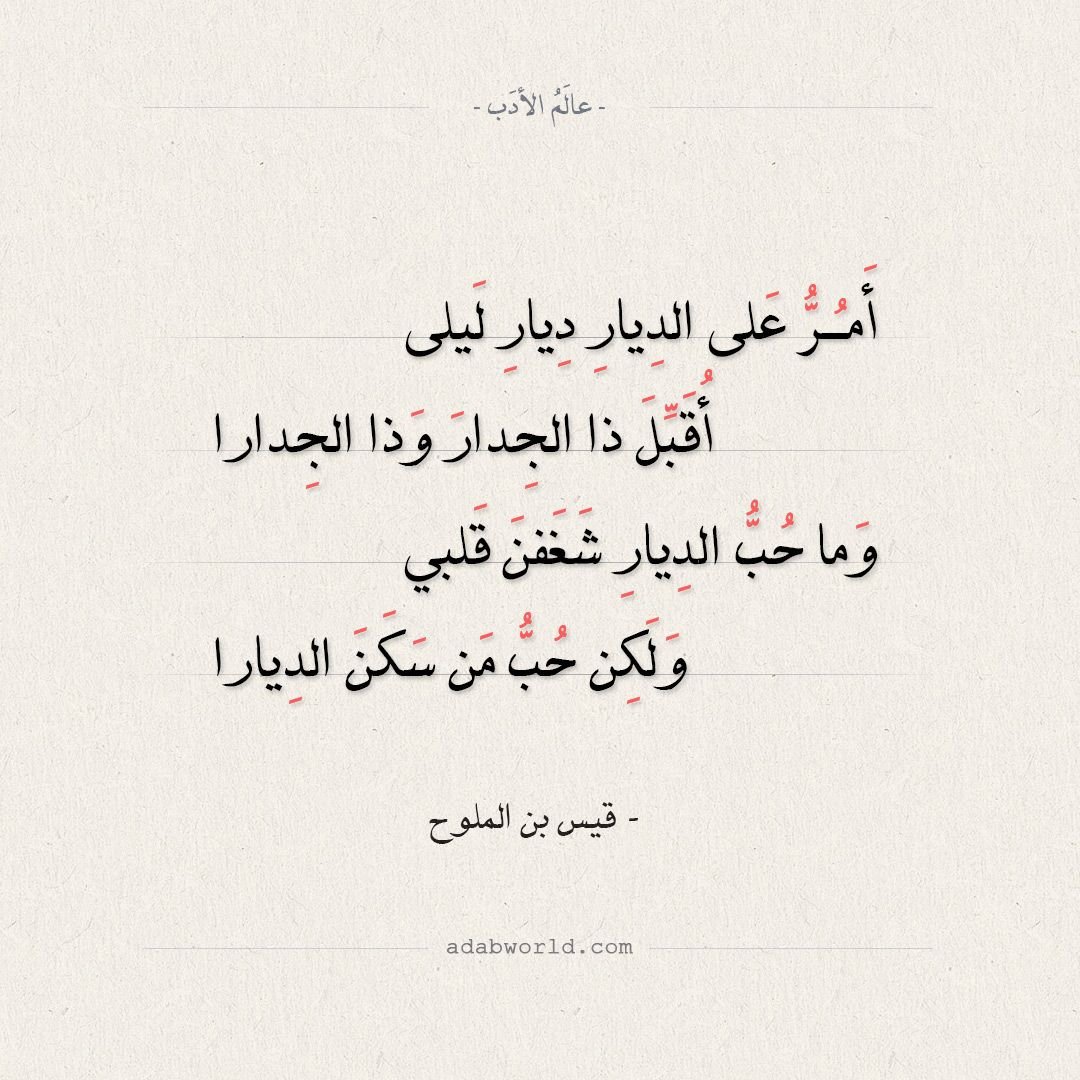 - عالَمُ الأدَب -
أَمُـرُّ عَلى الدِيارِ دِيارِ لَيلى
أُقَبِّلَ ذا الجِدارَ وَذا الجِدارا
وَما حُبُّ الدِيارِ شَغَفنَ قَلبي
وَلَكِن حُبُّ مَن سَكَنَ الدِيارا
- قيس بن الملوح
adabworld.com